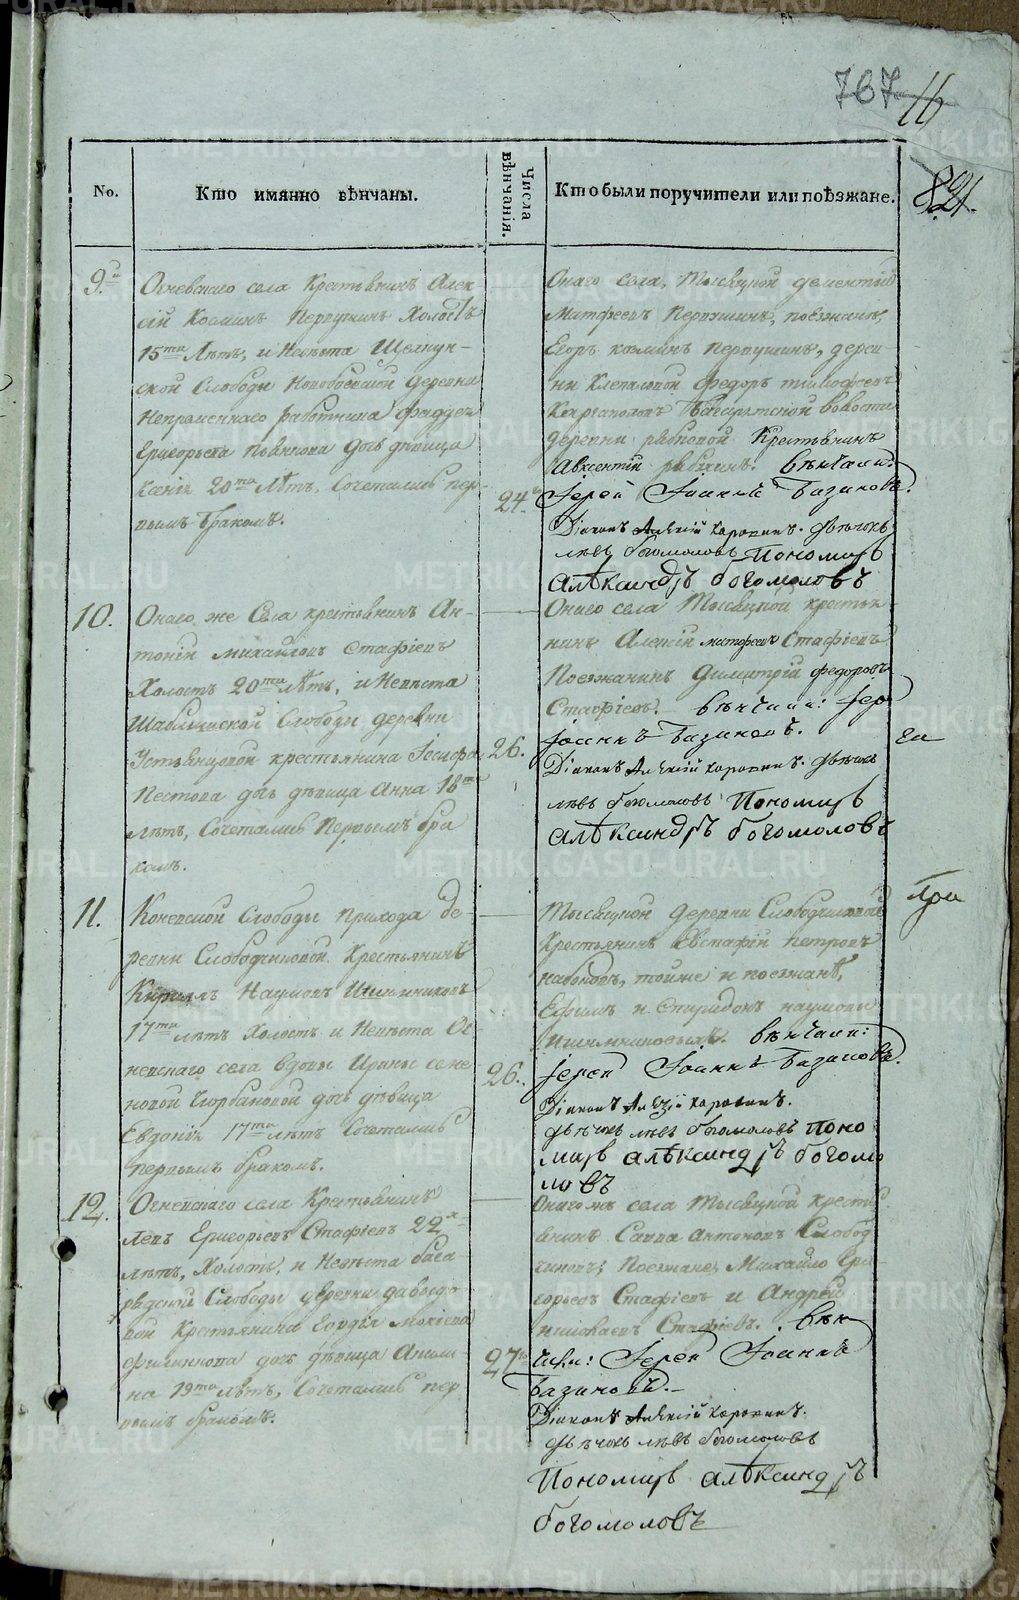 767 16
821.
No.
Кто имянно вѣнчаны.
Числа вѣнчанія.
Кто были поручители или поѣзжане.
9.й
Огневскаго села Крестьянинъ Алек-
сій Косминъ Первушинъ Холостъ
15ти Лѣтъ, и Невѣста Щелкун-
ской Слободы деревни
Непременнаго работника Фаддея
Григорьева дочь дѣвица
Ксенія 20ти Лѣтъ, Сочетались пер-
вымъ бракомъ.
24.
Онаго села, Тысяцкой дементій
Матфеевъ Первушинъ, поезжанъ,
Егоръ козминъ первушинъ, дерев-
ни федоръ тимофеевъ
волости
деревни рябковой Крестьянинъ
Авксентій рябкинъ. Вѣнчали:
Іерей Іоаннъ Базиновъ.
Діаконъ Алексій Коровинъ. дьячокъ
левъ богомоловъ Пономарь
Алѣксандръ богомоловъ
10.
Онаго же Села крестьянинъ Ан-
тоній михайловъ Стафіевъ
Холостъ 20ти лѣтъ, и Невѣста
Слободы деревни
Устьянцовой крестьянина Іосифа
Пестова дочь дѣвица Анна 18ти
лѣтъ, Сочетались Первымъ бра
комъ.
26.
Онаго села Тысяцкой крестья-
нинъ Алексій матфеевъ Стафіевъ
Поезжанинъ Димитрій федоровъ
Стафіевъ. Вѣнчали: Іерей
Іоаннъ Базиновъ.
Діаконъ Алексій Коровинъ. дьячокъ
левъ богомоловъ Пономарь
Алѣксандръ богомоловъ
11.
Коневской Слободы прихода де-
ревни Слободчиковой Крестьянинъ
Кирилъ Наумовъ
17ти лѣтъ Холостъ и Невѣста Ог
невскаго села вдовы Ирины семе
новой дочь дѣвица
Евдокія 17ти лѣтъ Сочетались
первымъ бракомъ.
26.
Тысяцкой деревни Слободчиковой
Крестьянинъ Евстафій петровъ
набоковъ, тойже и поезжанѣ,
Ефимъ и Спиридонъ наумовы
Вѣнчали:
Іерей Іоаннъ Базиновъ.
Діаконъ Алексій Коровинъ.
дьячокъ левъ богомоловъ Поно
марь Алѣксандръ богомо
ловъ
При
12.
Огневскаго села Крестьянинъ
Левъ Григорьевъ Стафіевъ 22х
лѣтъ, Холостъ, и Невѣста бага
рядской Слободы деревни
вой Крестьянина
Филиппова дочь дѣвица Акили-
на 19ти лѣтъ, Сочетались пер
вымъ бракомъ.
27.
Онагожъ села Тысяцкой кресть
янинъ Савва антоновъ Слобод
чиковъ; Поезжане, Михайло Гри-
горьевъ Стафіевъ и Андрей
Стафіевъ. Вѣн
чали: Іерей Іоаннъ
Базиновъ.
Діаконъ Алексій Коровинъ.
дьячокъ левъ богомоловъ
Пономарь Алѣксандръ
богомоловъ
METRIKI.GASO-URAL.RU